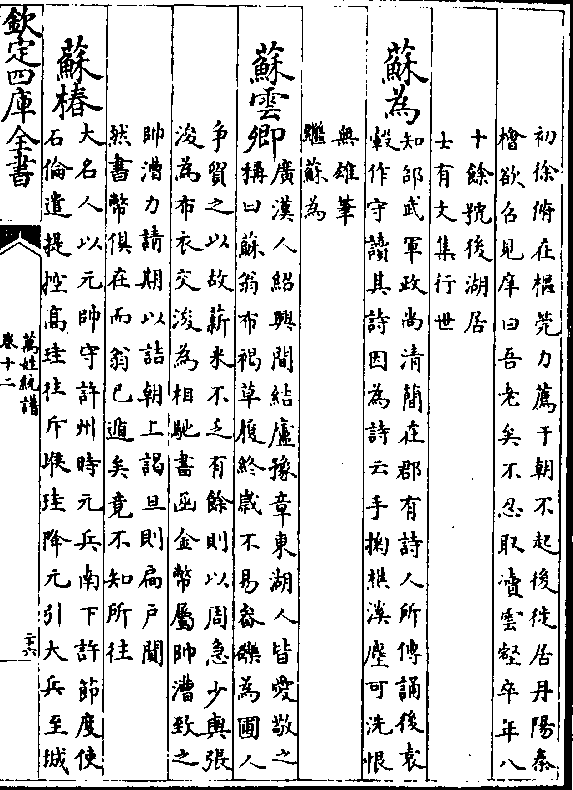 初徐俯在樞筦力薦于朝不起後徙居丹陽秦
檜欲召見庠曰吾老矣不忍取瀆雲壑卒年八
十餘號後湖居
士有文集行世
蘇為
知邵武軍政尚清簡在郡有詩人所傳誦後袁
轂作守讀其詩因為詩云手掬樵溪塵可洗恨
無雄筆
繼蘇為
蘇雲卿
廣漢人紹興間結廬豫章東湖人皆愛敬之
稱曰蘇翁布褐草履終歲不易畚礫為圃人
爭貿之以故薪米不乏有餘則以周急少與張
浚為布衣交浚為相馳書函金幣屬帥漕致之
帥漕力請期以詰朝上謁旦則扃戶闃
然書幣俱在而翁已遁矣竟不知所往
蘇椿
大名人以元帥守許州時元兵南下許節度使
石倫遣提控高珪往斥堠珪降元引大兵至城
欽定四庫全書
萬姓統譜
卷十二
二十六